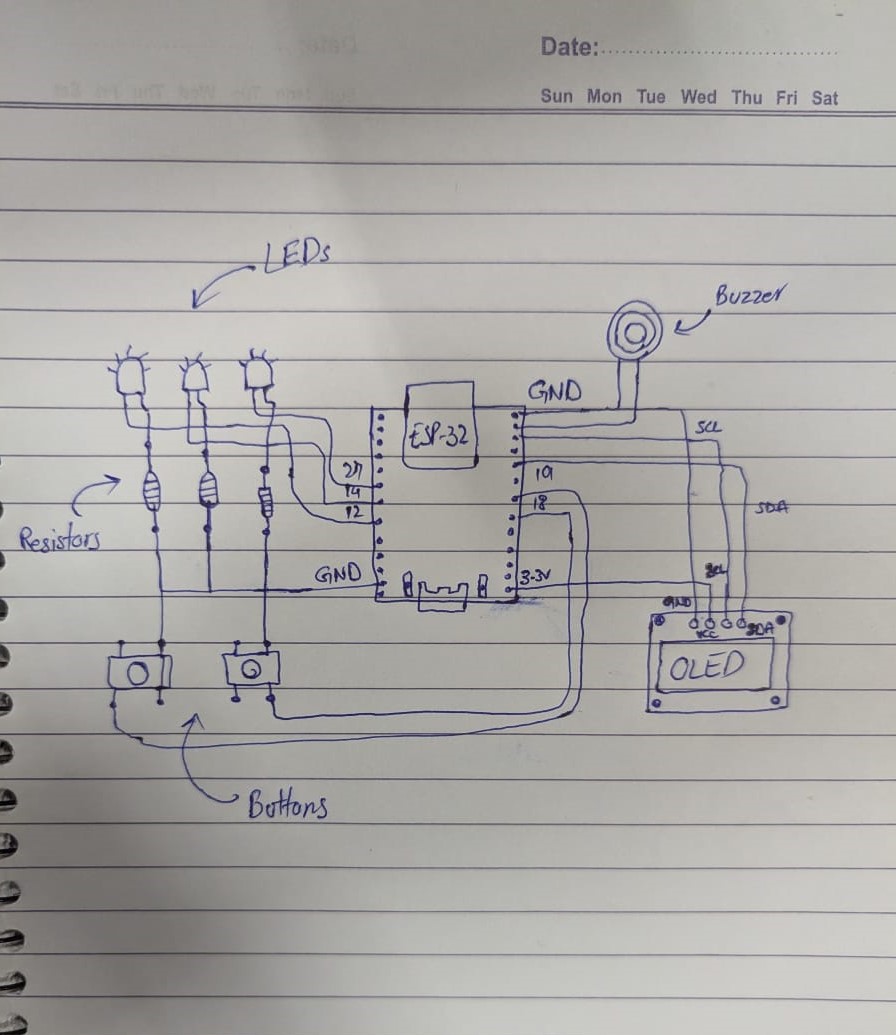 Date:
Sun Mon Tue Wed Thu Fri Sat
LEDs
Buzzer
GND
ESP-32
SCL
27
14
12
19
18
SDA
Resistors
GND
3.3V
SCL
GND
VCC
SDA
OLED
Buttons